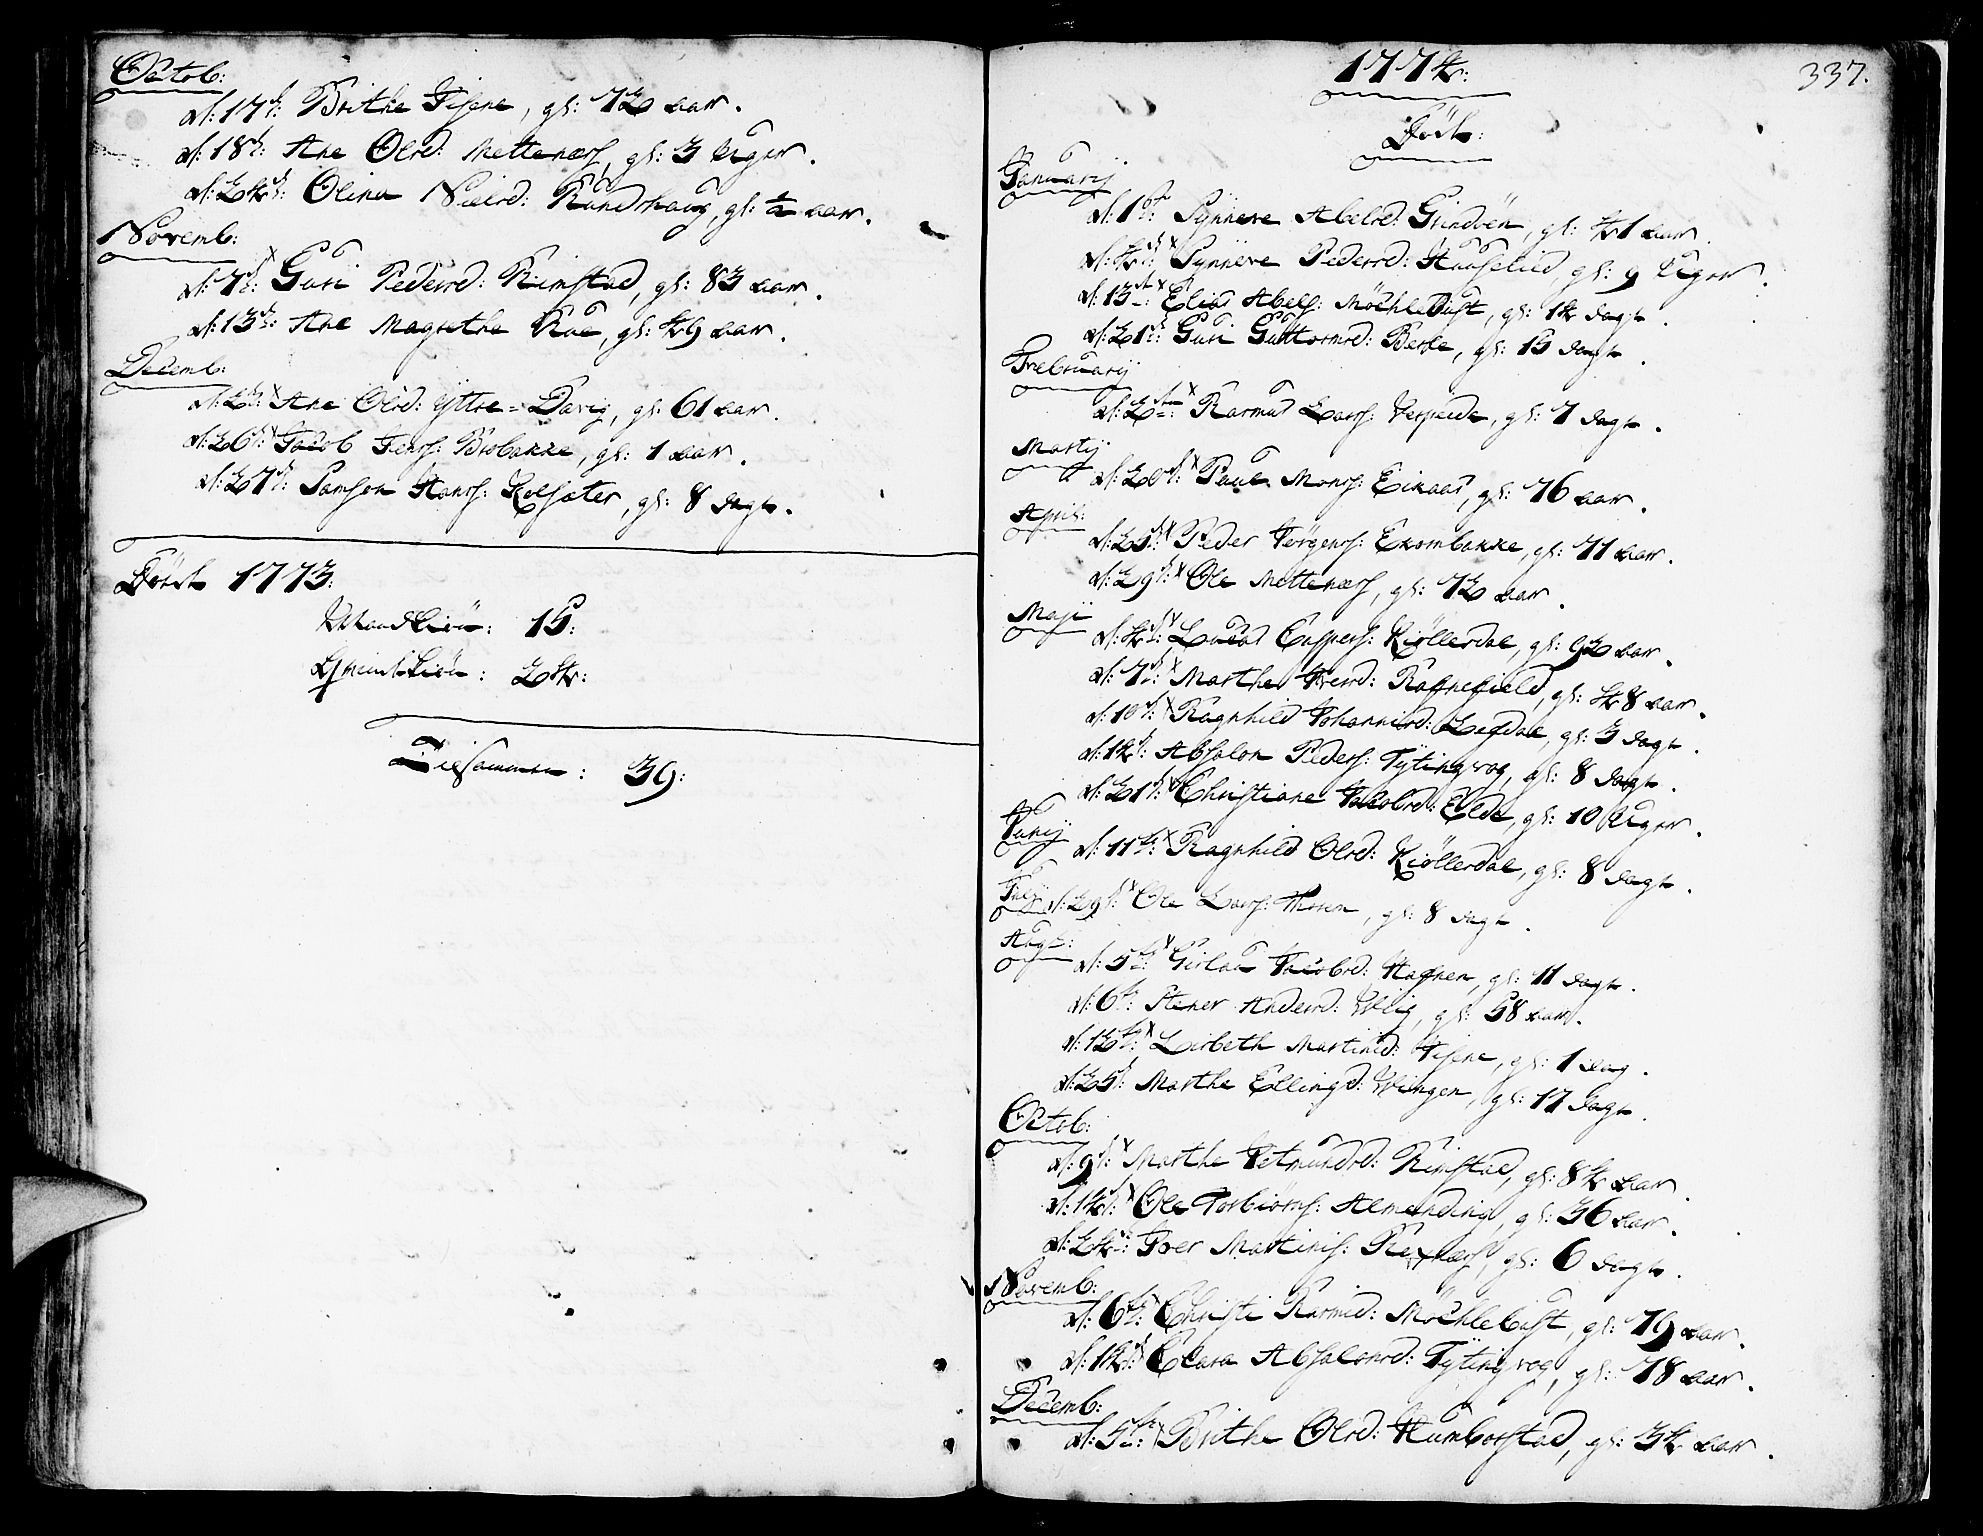 Octob:
d: 17d: Brithe Fisene, gl: 72 aar.
d: 18d: Ane Olsd: Mettenæss, gl: 3 Uger.
d: 24d: Olina Nielsd: Rundshaug, gl: ½ aar.
Novemb:
d: 7d: Guri Pedersd: Rimstad, gl: 83 aar.
d: 13d: Ane Magrethe Rue, gl: 49 aar.
Decemb:
d: 2d: Ane Olsd: Yttre-Davig, gl: 61 aar.
d: 26d: Jacob Jens: Brobakke, gl: 1 aar.
d: 27d: Samson Hans: Kolsæter, gl: 8 dage.
Død 1773:
Mandkiøn: 15:
Qvindkiøn: 24:
Tilsammen: 39:
337.
1774:
Død:
Januarij
d: 1st: Synneve Abelsd: Grindøen, gl: 41 aar.
d: 4d: Synneve Pedersd: Hauselied, gl: 9 Uger.
d: 13d: Elias Abels: Möchlebust, gl: 14 dage.
d: 21d: Guri Guttormsd: Berle, gl: 15 dage.
Februarij
d: 2den: Rasmus Lars: gl: 7 dage.
Martij
d: 20d: Paul Mons: Eikaas, gl: 76 aar.
April:
d: 25d: Peder Jørgens: Ekornbakke, gl: 71 aar.
d: 29d: Ole Mettenæss, gl: 72 aar.
Maji
d: 4d: Lucas Caspers: Kiöllerdal, gl: 92 aar.
d: 7d: Marthe Iversd: Rafnefield, gl: 48 aar.
d: 10d: Ragnhild Johannisd: Legdal, gl: 3 dage.
d: 14d: Absalon Peders: Tytingvog, gl: 8 dage.
d: 21d: Christiane Jacobsd: Elde, gl: 10 Uger.
Junij
d: 11te: Ragnhild Olsd: Kiöllerdal, gl: 8 dage.
Julij
d: 29d: Ole Lars: gl: 8 dage.
Aug:
d: 5te: Girlau Jacobsd: Hafnen, gl: 11 dage.
d: 6te: Stener Andersd: Vlig, gl: 58 aar.
d: 12te: Lisbeth Martinsd: Fisene, gl: 1 dag.
d: 25d: Marthe Ellingsd: Vengen, gl: 17 dage.
Octob:
d: 9d: Marthe Jetmundsd: Rimstad, gl: 84 aar.
d: 14d: Ole Torbiørns: Almending, gl: 36 aar.
d: 24d: Iver Martinis: Rexnæss, gl: 6 dage.
Novemb:
d: 6te: Christi Rasmusd: Möchlebust, gl: 79 aar.
d: 14d: Clara Absalonsd: Tytingvog, gl: 78 aar.
Decemb:
d: 5te: Brithe Olsd: Humborstad, gl: 34 aar.